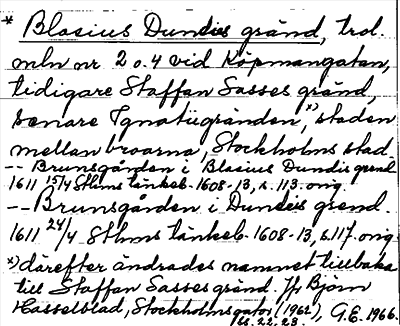 * Blasius Dundies gränd, trol.
mln nr 2 o. 4 vid Köpmangatan,
tidigare Staffan Sasses gränd,
senare Ignatiigränden,*) staden
mellan broarna, Stockholms stad.
-- Brunsgården i Blasius Dundis grend
1611 15/4 Sthms tänkeb. 1608-13, s. 113. orig.
-- Brunsgården i Dundeis grend.
1611 24/4 Sthms tänkeb. 1608-13, s. 117. orig.
*) därefter ändrades namnet tillbaka
till Staffan Sasses gränd. Jfr Björn
Hasselblad, Stockholmsgator (1962), G.E. 1966.
ss. 22, 23.